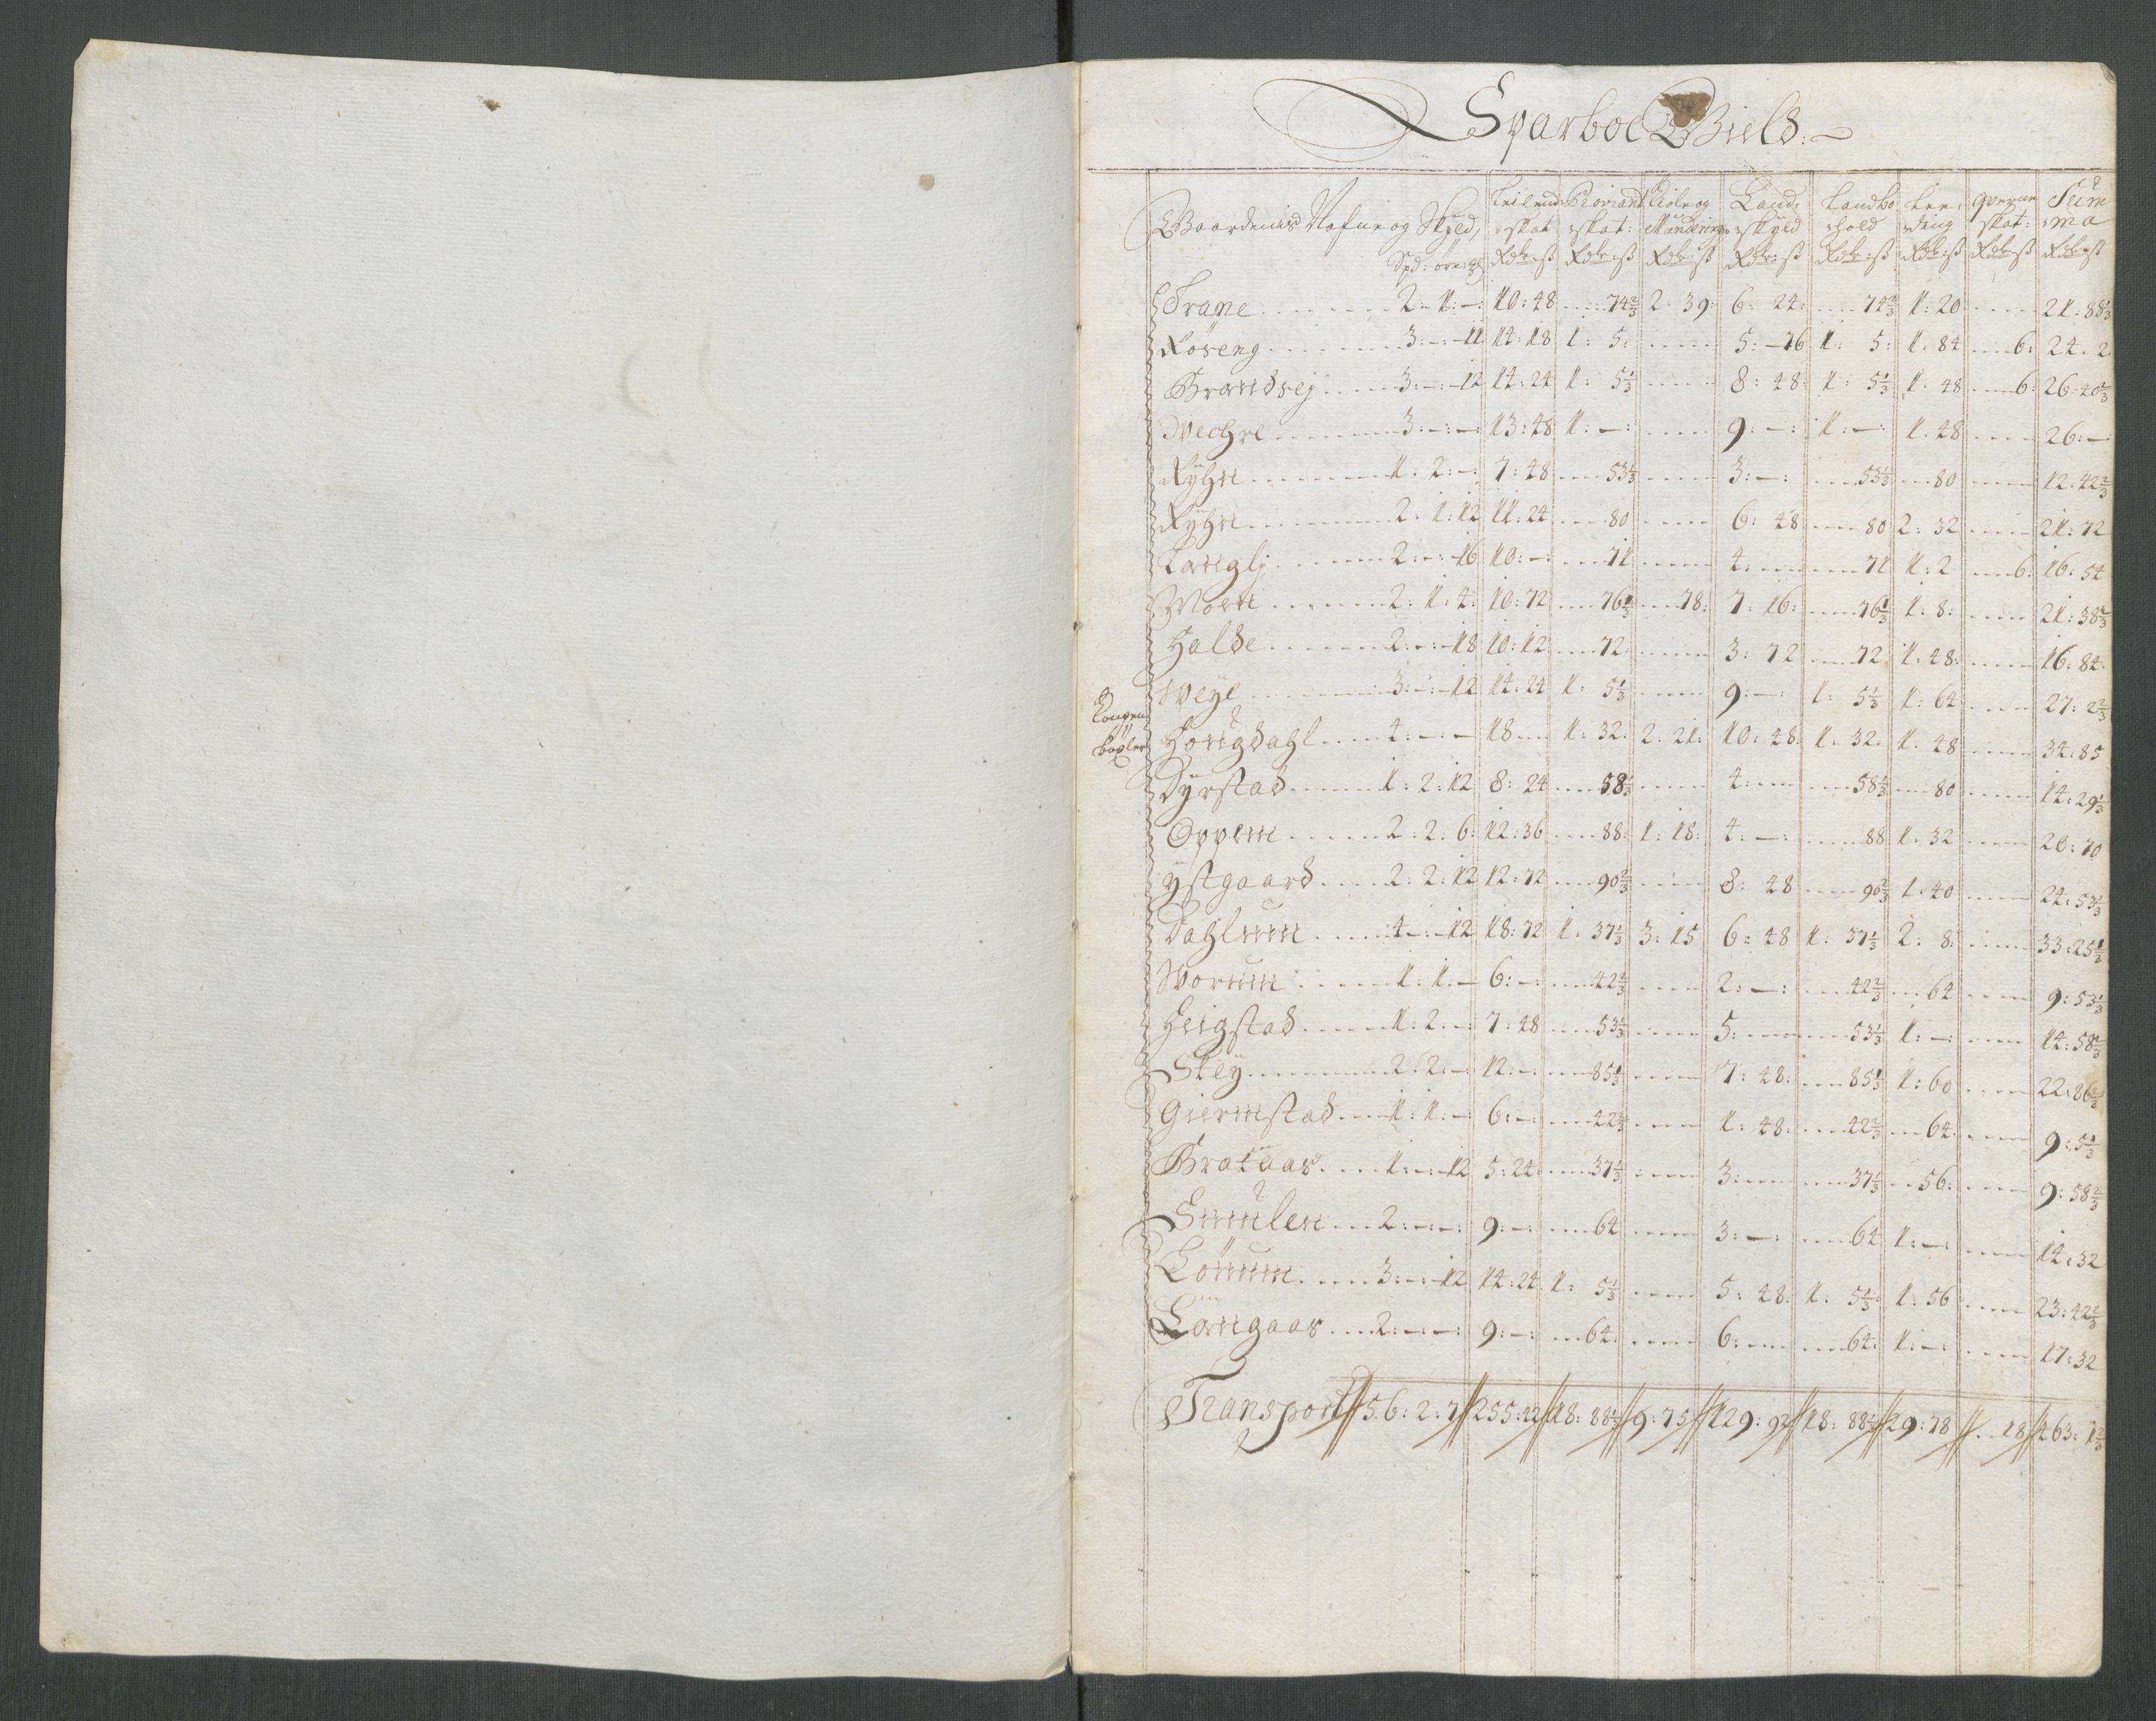 Sparboe Gield:
Gaardernis Nafne og Skyld, Leilend: Proviant Kiole og Land: Landho Lee: qverne Sum
skat :skat: Mundering :skyld :hold :ding skat: :ma
Spd: öre: Rdr:ß Rdr:ß Rdr:ß Rdr:ß Rdr:ß Rdr:ß Rdr:ß Rdr:ß
Trane 2: 1: — 10: 48 74 2/3 2: 39: 6: 24: 74 2/3 1: 20 21: 88 1/3
Röseng 3: —: 11 14: 18 1: 5: 5: 76 1: 5: 1: 84 6: 24: 2
Brandsej 3: —: 12 14: 24 1: 5 1/3 8: 48: 1: 5 1/3 1: 48 6: 26: 40 2/3
Mechre 3: —: — 13: 48 1: —: 9: —: 1: —: 1: 48 26: —
Ryhn 1: 2: —: 7: 48 53 1/3 3: —: 53 1/3 80 12: 42 2/3
Ryhn 2: 1: 12 11: 24 80 6: 48 80 2: 32 21: 72
Langlj 2: —: 16 10: —: 71 4: 71 1: 2 6: 16: 54
Moen 2: 1: 4: 10: 72 76 1/3 78: 7: 16: 76 1/3 1: 8: 21: 38 2/3
Halde 2: —: 18 10: 12 72: 3: 72 72 1: 48: 16: 84:
Weye 3: —: 12 14: 24 1: 5 1/3 9: —: 1: 5 1/3 1: 64 27: 2 2/3
Kongen
böxler
Hougdahl 4: —: — 18 1: 32: 2: 21: 10: 48: 1: 32: 1: 48 34: 85
Dyrstad 1: 2: 12 8: 24 58 1/3 4: 58 1/3 80 14: 29 1/3
Oppem 2: 2: 6: 12: 36 88: 1: 18: 4: —: 88 1: 32 20: 70
ystgaard 2: 2: 12 12: 72 90 2/3 8: 48 90 2/3 1: 40 24: 53 1/3
Dahlum 4: —: 12 18: 72 1: 37 1/3 3: 15 6: 48 1: 37 1/3 2: 8: 33: 25 1/3
Worum 1: 1: — 6: —: 42 2/3 2: —: 42 2/3 64 9: 53 1/3
Heigstad 1: 2: —: 7: 48 53 1/3 5: 53 1/3 1: —: 14: 58 2/3
Skey 2: 2: — 12: —: 85 1/3 7: 48: 85 1/3 1: 60 22: 86 2/3
Giermstad 1: 1: —: 6: —: 42 2/3 1: 48: 42 2/3 64: 9: 5 1/3
Brataas 1: —: 12 5: 24: 37 1/3 3: 37 1/3 56: 9: 58 2/3
Smulen 2: —: —: 9: —: 64 3: —: 64 1: —: 14: 32
Lönum 3: —: 12 14: 24: 1: 5 1/3 5: 48: 1: 5 1/3 1: 56 23: 42 2/3
Langaas 2: —: —: 9: —: 64: 6: 64: 1: —: 17: 32
Transport 56: 2: 7 255: 42 18: 88 1/3 9: 75 129: 92 18: 88 1/3 29: 78 18 463: 1 2/3